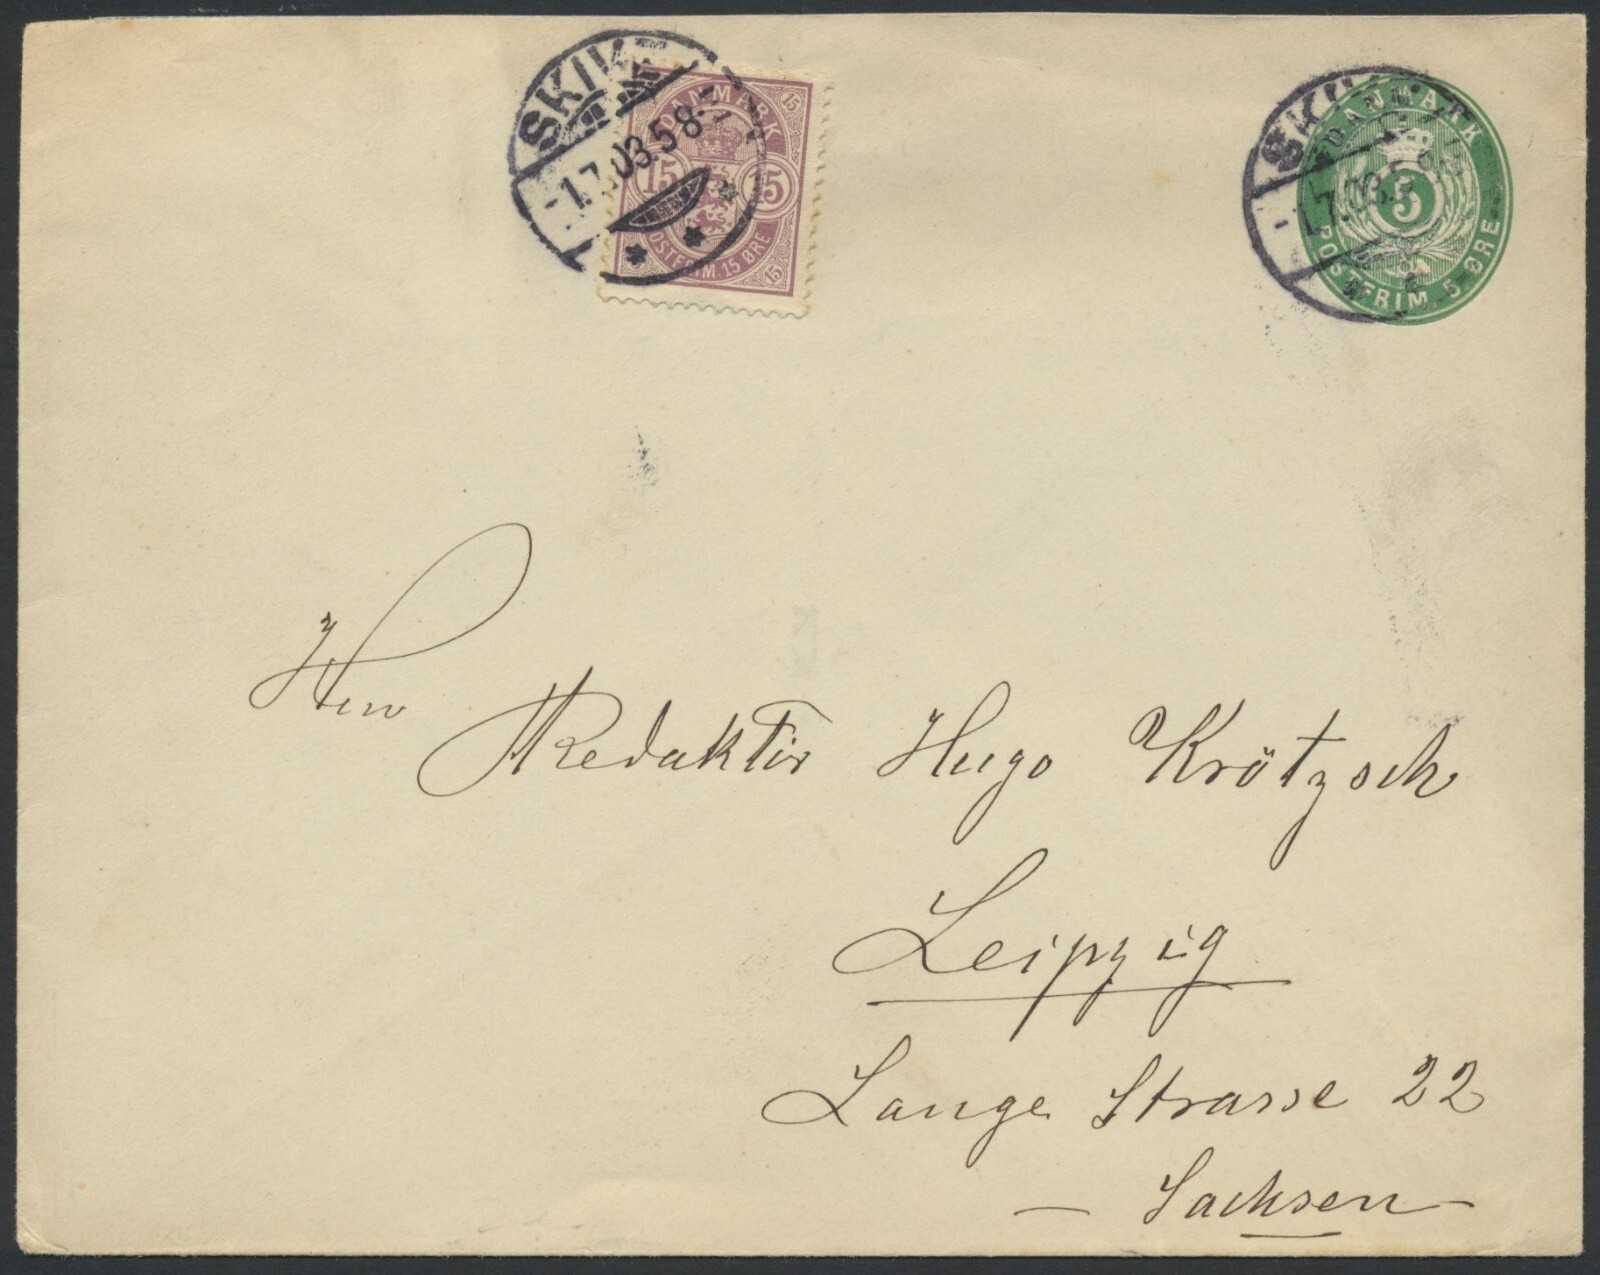 SKIVE
1.7.03.5 8-
DANMARK
15 15
15 15
POSTFRIM. 15 ØRE
SKIVE
1.7.03.5
DANMARK
5
POSTFRIM. 5 ØRE
Herr
Redaktör Hugo Krötzsch
Leipzig
Lange Strasse 22
— Sachsen —